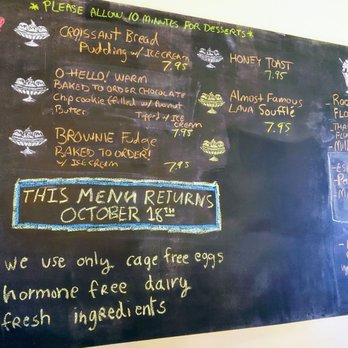 * PLEASE ALLOW 10 MINUTES FOR DESSERTS *
CROISSANT BREAD
PUDDING w/ ICE CREAM
7.95
O HELLO! WARM
BAKED TO ORDER CHOCOLATE
Chip cookie filled w/ Peanut
Butter Topped w/ ICE
CREAM
7.95
BROWNIE FUDGE
BAKED TO ORDER!
w/ ICE CREAM 7.95
HONEY TOAST
7.95
Almost Famous
LAVA Soufflé
7.95
THIS MENU RETURNS
OCTOBER 18TH
we use only cage free eggs
hormone free dairy
fresh ingredients